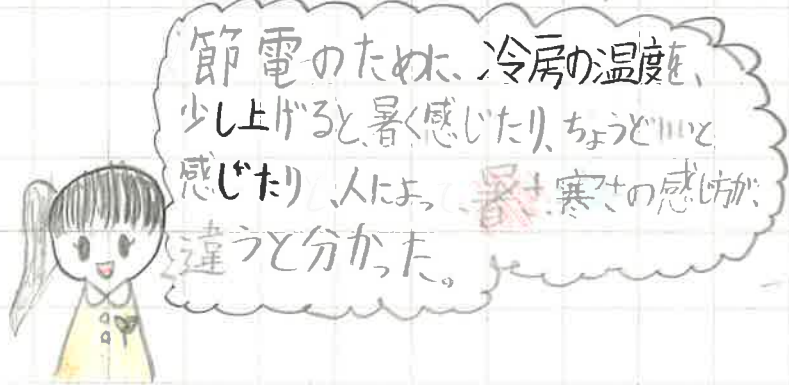 節電のために、冷房の温度を、
少し上げると、暑く感じたり、ちょうどいいと
感じたりし、人によって、暑さ、寒さの感じ方が、
違うと分かった。